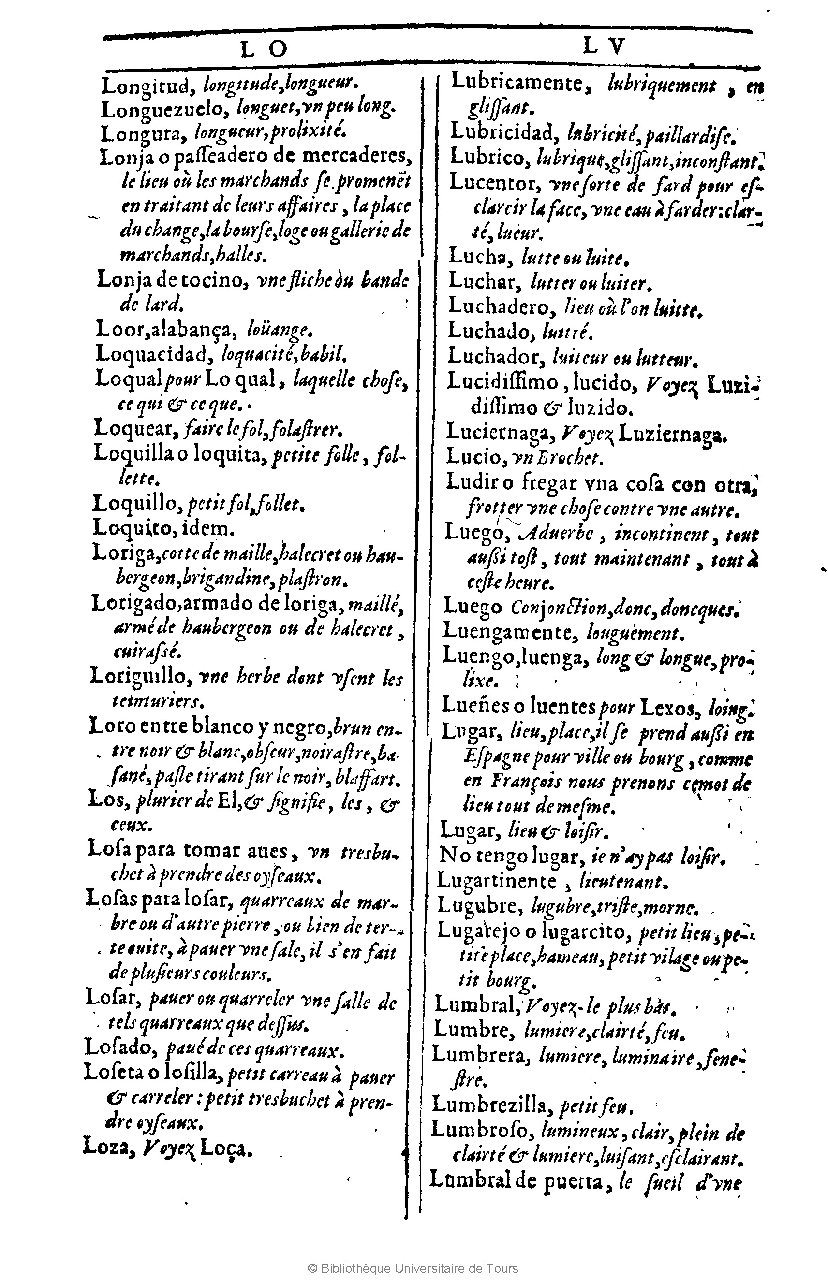 L O
Longitud, longitude, longueur.
Longuezuelo, longuet, vn peu long.
Longura, longueur, prolixité.
Lonja o paſſeadero de mercaderes,
le lieu où les marchands ſe promenẽt
en traitant de leurs affaires, la place
du change, la bourſe, loge ou gallerie de
marchands, halles.
Lonja de tocino, vne fliche ou bande
de lard.
Loor, alabança, loüange.
Loquacidad, loquacité, babil.
Loqual pour Lo qual, laquelle choſe,
ce qui & ce que.
Loquear, faire le fol, folaſtrer.
Loquilla o loquita, petite folle, fol-
lette.
Loquillo, petit fol, follet.
Loquito, idem.
Loriga, cotte de maille, halecret ou hau-
bergeon, brigandine, plaſtron.
Lorigado, armado de loriga, maillé,
armé de haubergeon ou de halecret,
cuiraſsé.
Loriguillo, vne herbe dont vſent les
teinturiers.
Loro entre blanco y negro, brun en-
tre noir & blanc, obſcur, noiraſtre, ba-
ſané, paſle tirant ſur le noir, blaffart.
Los, plurier de El, & ſignifie, les, &
ceux.
Loſa para tomar aues, vn tresbu-
chet à prendre des oyſeaux.
Loſas para loſar, quarreaux de mar-
bre ou d'autre pierre, ou bien de ter-
re cuite, à pauer vne ſale, il s'en fait
de pluſieurs couleurs.
Loſar, pauer ou quarreler vne ſalle de
tels quarreaux que deſſus.
Loſado, paué de ces quarreaux.
Loſeta o loſilla, petit carreau à pauer
& carreler: petit tresbuchet à pren-
dre oyſeaux.
Loza, Voyez Loça.
L V
Lubricamente, lubriquement, en
gliſſant.
Lubricidad, lubricité, paillardiſe.
Lubrico, lubrique, gliſſant, inconſtant.
Lucentor, vne ſorte de fard pour eſ-
clarcir la face, vne eau à farder: clar-
té, lueur.
Lucha, lutte ou luite.
Luchar, lutter ou luiter.
Luchadero, lieu où l'on luitte.
Luchado, luitté.
Luchador, luiteur ou lutteur.
Lucidiſſimo, lucido, Voyez Luzi-
diſſimo & luzido.
Luciernaga, Voyez Luziernaga.
Lucio, vn Brochet.
Ludir o fregar vna coſa con otra,
frotter vne choſe contre vne autre.
Luego, Aduerbe, incontinent, tout
auſſi toſt, tout maintenant, tout à
ceſte heure.
Luego Conjonction, donc, doncques.
Luengamente, longuement.
Luengo, luenga, long & longue, pro-
lixe.
Lueñes o luentes pour Lexos, loing.
Lugar, lieu, place, il ſe prend auſſi en
Eſpagne pour ville ou bourg, comme
en François nous prenons ce mot de
lieu tout de meſme.
Lugar, lieu & loiſir.
No tengo lugar, ie n'ay pas loiſir.
Lugartinente, lieutenant.
Lugubre, lugubre, triſte, morne.
Lugarejo o lugarcito, petit lieu, pe-
tite place, hameau, petit vilage ou pe-
tit bourg.
Lumbral, Voyez-le plus bas.
Lumbre, lumiere, clairté, feu.
Lumbrera, lumiere, luminaire, fene-
ſtre.
Lumbrezilla, petit feu.
Lumbroſo, lumineux, clair, plein de
clairté & lumiere, luiſant, eſclairant.
Lumbral de puerta, le ſueil d'vne
© Bibliothèque Universitaire de Tours